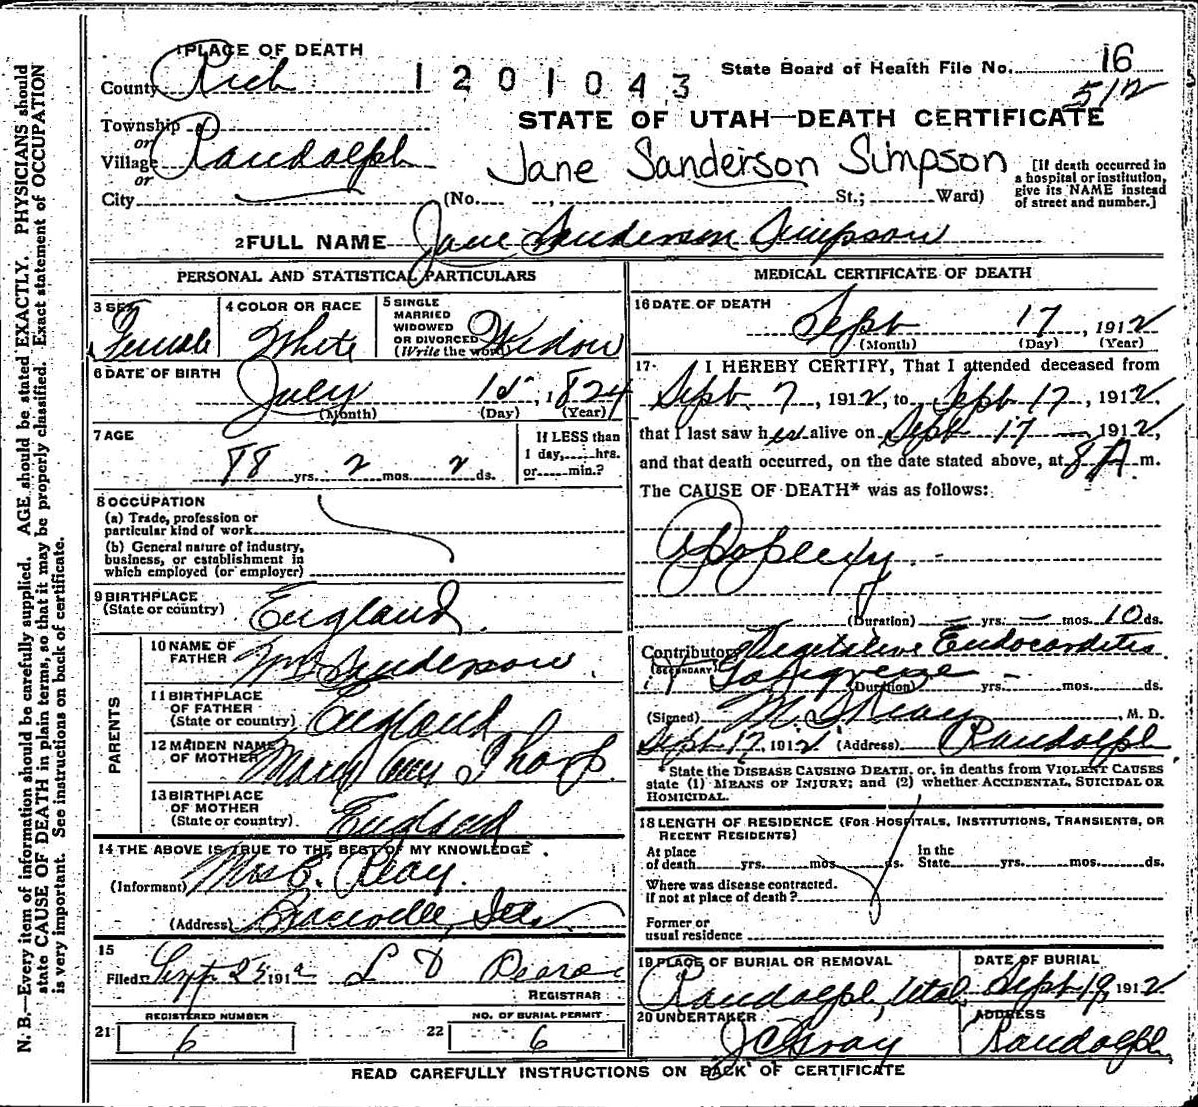 N. B.—Every item of information should be carefully supplied. AGE should be stated EXACTLY. PHYSICIANS should
state CAUSE OF DEATH in plain terms, so that it may be properly classified. Exact statement of OCCUPATION
is very important. See instructions on back of certificate.
1 PLACE OF DEATH
County Rich
1201043
State Board of Health File No. 16
512
STATE OF UTAH—DEATH CERTIFICATE
Township
or
Village Randolph
or
City
Jane Sanderson Simpson
(No. , St.; Ward)
[If death occurred in
a hospital or institution,
give its NAME instead
of street and number.]
2 FULL NAME Jane Sanderson Simpson
PERSONAL AND STATISTICAL PARTICULARS
3 SEX
Female
4 COLOR OR RACE
White
5 SINGLE
MARRIED
WIDOWED
OR DIVORCED
(Write the word)
Widow
6 DATE OF BIRTH
July 15, 1824
(Month) (Day) (Year)
7 AGE
88 yrs. 2 mos. 2 ds.
If LESS than
1 day, hrs.
or min.?
8 OCCUPATION
(a) Trade, profession or
particular kind of work
(b) General nature of industry,
business, or establishment in
which employed (or employer)
9 BIRTHPLACE
(State or country)
England
PARENTS
10 NAME OF
FATHER
Wm Sanderson
11 BIRTHPLACE
OF FATHER
(State or country)
England
12 MAIDEN NAME
OF MOTHER
Mary Ann Thorp
13 BIRTHPLACE
OF MOTHER
(State or country)
England
14 THE ABOVE IS TRUE TO THE BEST OF MY KNOWLEDGE
(Informant) Mrs E. Reay.
(Address)
15
Filed Sept. 25 1912 L D
REGISTRAR
REGISTERED NUMBER
21 6
NO. OF BURIAL PERMIT
22 6
MEDICAL CERTIFICATE OF DEATH
16 DATE OF DEATH
Sept 17, 1912
(Month) (Day) (Year)
17. I HEREBY CERTIFY, That I attended deceased from
Sept. 7, 1912, to Sept 17, 1912,
that I last saw her alive on Sept 17 1912,
and that death occurred, on the date stated above, at 8 A m.
The CAUSE OF DEATH* was as follows:
Apoplexy
(Duration) yrs. mos. 10 ds.
Contributory Vegetative Endocarditis
(SECONDARY)
(Duration) yrs. mos. ds.
(Signed) M. D.
Sept 17, 1912 (Address) Randolph
*State the DISEASE CAUSING DEATH, or, in deaths from VIOLENT CAUSES
state (1) MEANS OF INJURY; and (2) whether ACCIDENTAL, SUICIDAL OR
HOMICIDAL.
18 LENGTH OF RESIDENCE (FOR HOSPITALS, INSTITUTIONS, TRANSIENTS, OR
RECENT RESIDENTS)
At place
of death yrs. mos. ds.
In the
State yrs. mos. ds.
Where was disease contracted.
if not at place of death?
Former or
usual residence
19 PLACE OF BURIAL OR REMOVAL
Randolph, Utah
DATE OF BURIAL
Sept 19, 1912
20 UNDERTAKER
J C Gray
ADDRESS
Randolph
READ CAREFULLY INSTRUCTIONS ON BACK OF CERTIFICATE